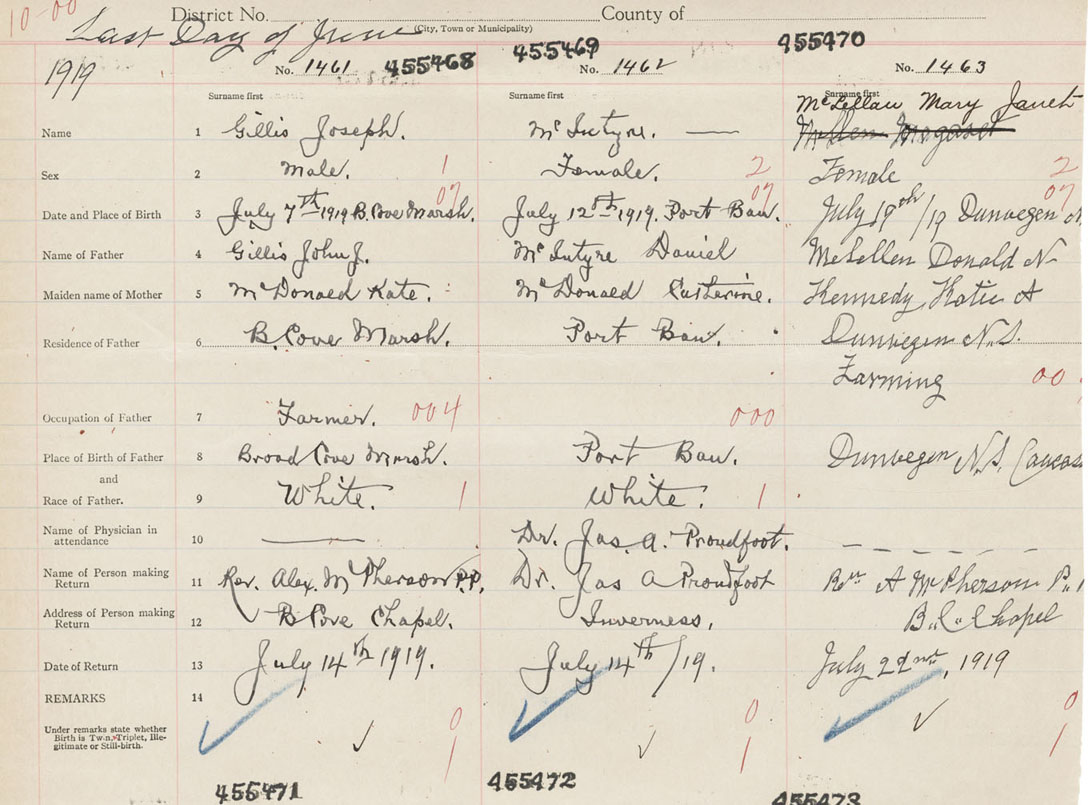 10-00 District No. County of
Last Day of June (City, Town or Municipality)
1919 No. 1461 455468 455469 No. 1462 455470 No. 1463
Surname first Surname first Surname first
McLellan Mary Janet
Name 1 Gillis Joseph. McIntyre. —
Sex 2 Male. 1 Female. 2 Female 2
07 07 07
Date and Place of Birth 3 July 7th 1919 B. Cove Marsh. July 12th 1919. Port Ban. July 19th/19 Dunvegen
Name of Father 4 Gillis John J. McIntyre Daniel McLellen Donald N
Maiden name of Mother 5 McDonald Kate. McDonald Catherine. Kennedy Katie A
Residence of Father 6 B. Cove Marsh. Port Ban. Dunvegen N.S.
Farming 00
Occupation of Father 7 Farmer. 004 000
Place of Birth of Father 8 Broad Cove Marsh. Port Ban. Dunvegen N.S. Caucas
and
Race of Father. 9 White. 1 White. 1
Name of Physician in
attendance 10 — Dr. Jas. A. Proudfoot. — — — — —
Name of Person making
Return 11 Rev. Alex. McPherson P.P. Dr. Jas A Proudfoot Rev A McPherson P.
Address of Person making
Return 12 B Cove Chapel. Inverness. B. C. Chapel
Date of Return 13 July 14th 1919. July 14th/19. July 22nd, 1919
REMARKS 14
Under remarks state whether
Birth is Twin, Triplet, Ille-
gitimate or Still-birth.
✓ ✓ 0 ✓ ✓ 0 ✓ ✓ 0
1 1 1
455471 455472 455473